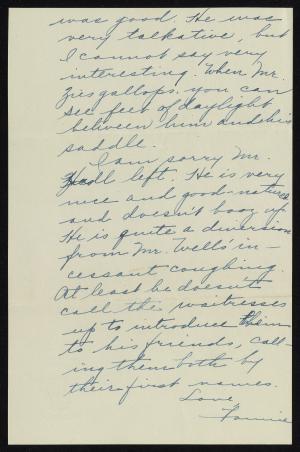 was good. He was
very talkative, but
I cannot say very
interesting. When Mr.
gallops, you can
see feet of daylight
between him and his
saddle.
I am sorry Mr.
left. He is very
nice and good-natured
and doesn't booz up.
He is quite a diversion
from Mr. Wells' in-
cessant coughing.
At least he doesn't
call the waitresses
up to introduce them
to his friends, call-
ing them both by
their first names.
Love
Fannie